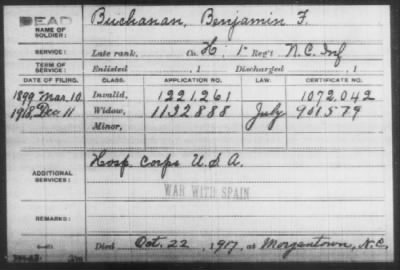 DEAD
NAME OF SOLDIER: Buchanan, Benjamin F.
SERVICE: Late rank, Co. H, 1 Reg't N.C. Inf
TERM OF SERVICE: Enlisted , 1 Discharged , 1
DATE OF FILING. CLASS. APPLICATION NO. LAW. CERTIFICATE NO.
1899 Mar. 10 Invalid, 1221261 1072.042
1918, Dec. 11 Widow, 1132888 July 901579
Minor,
ADDITIONAL SERVICES: Hosp. Corps U.S.A.
WAR WITH SPAIN
REMARKS:
Died Oct. 22, 1917, at Morganton, N.C.